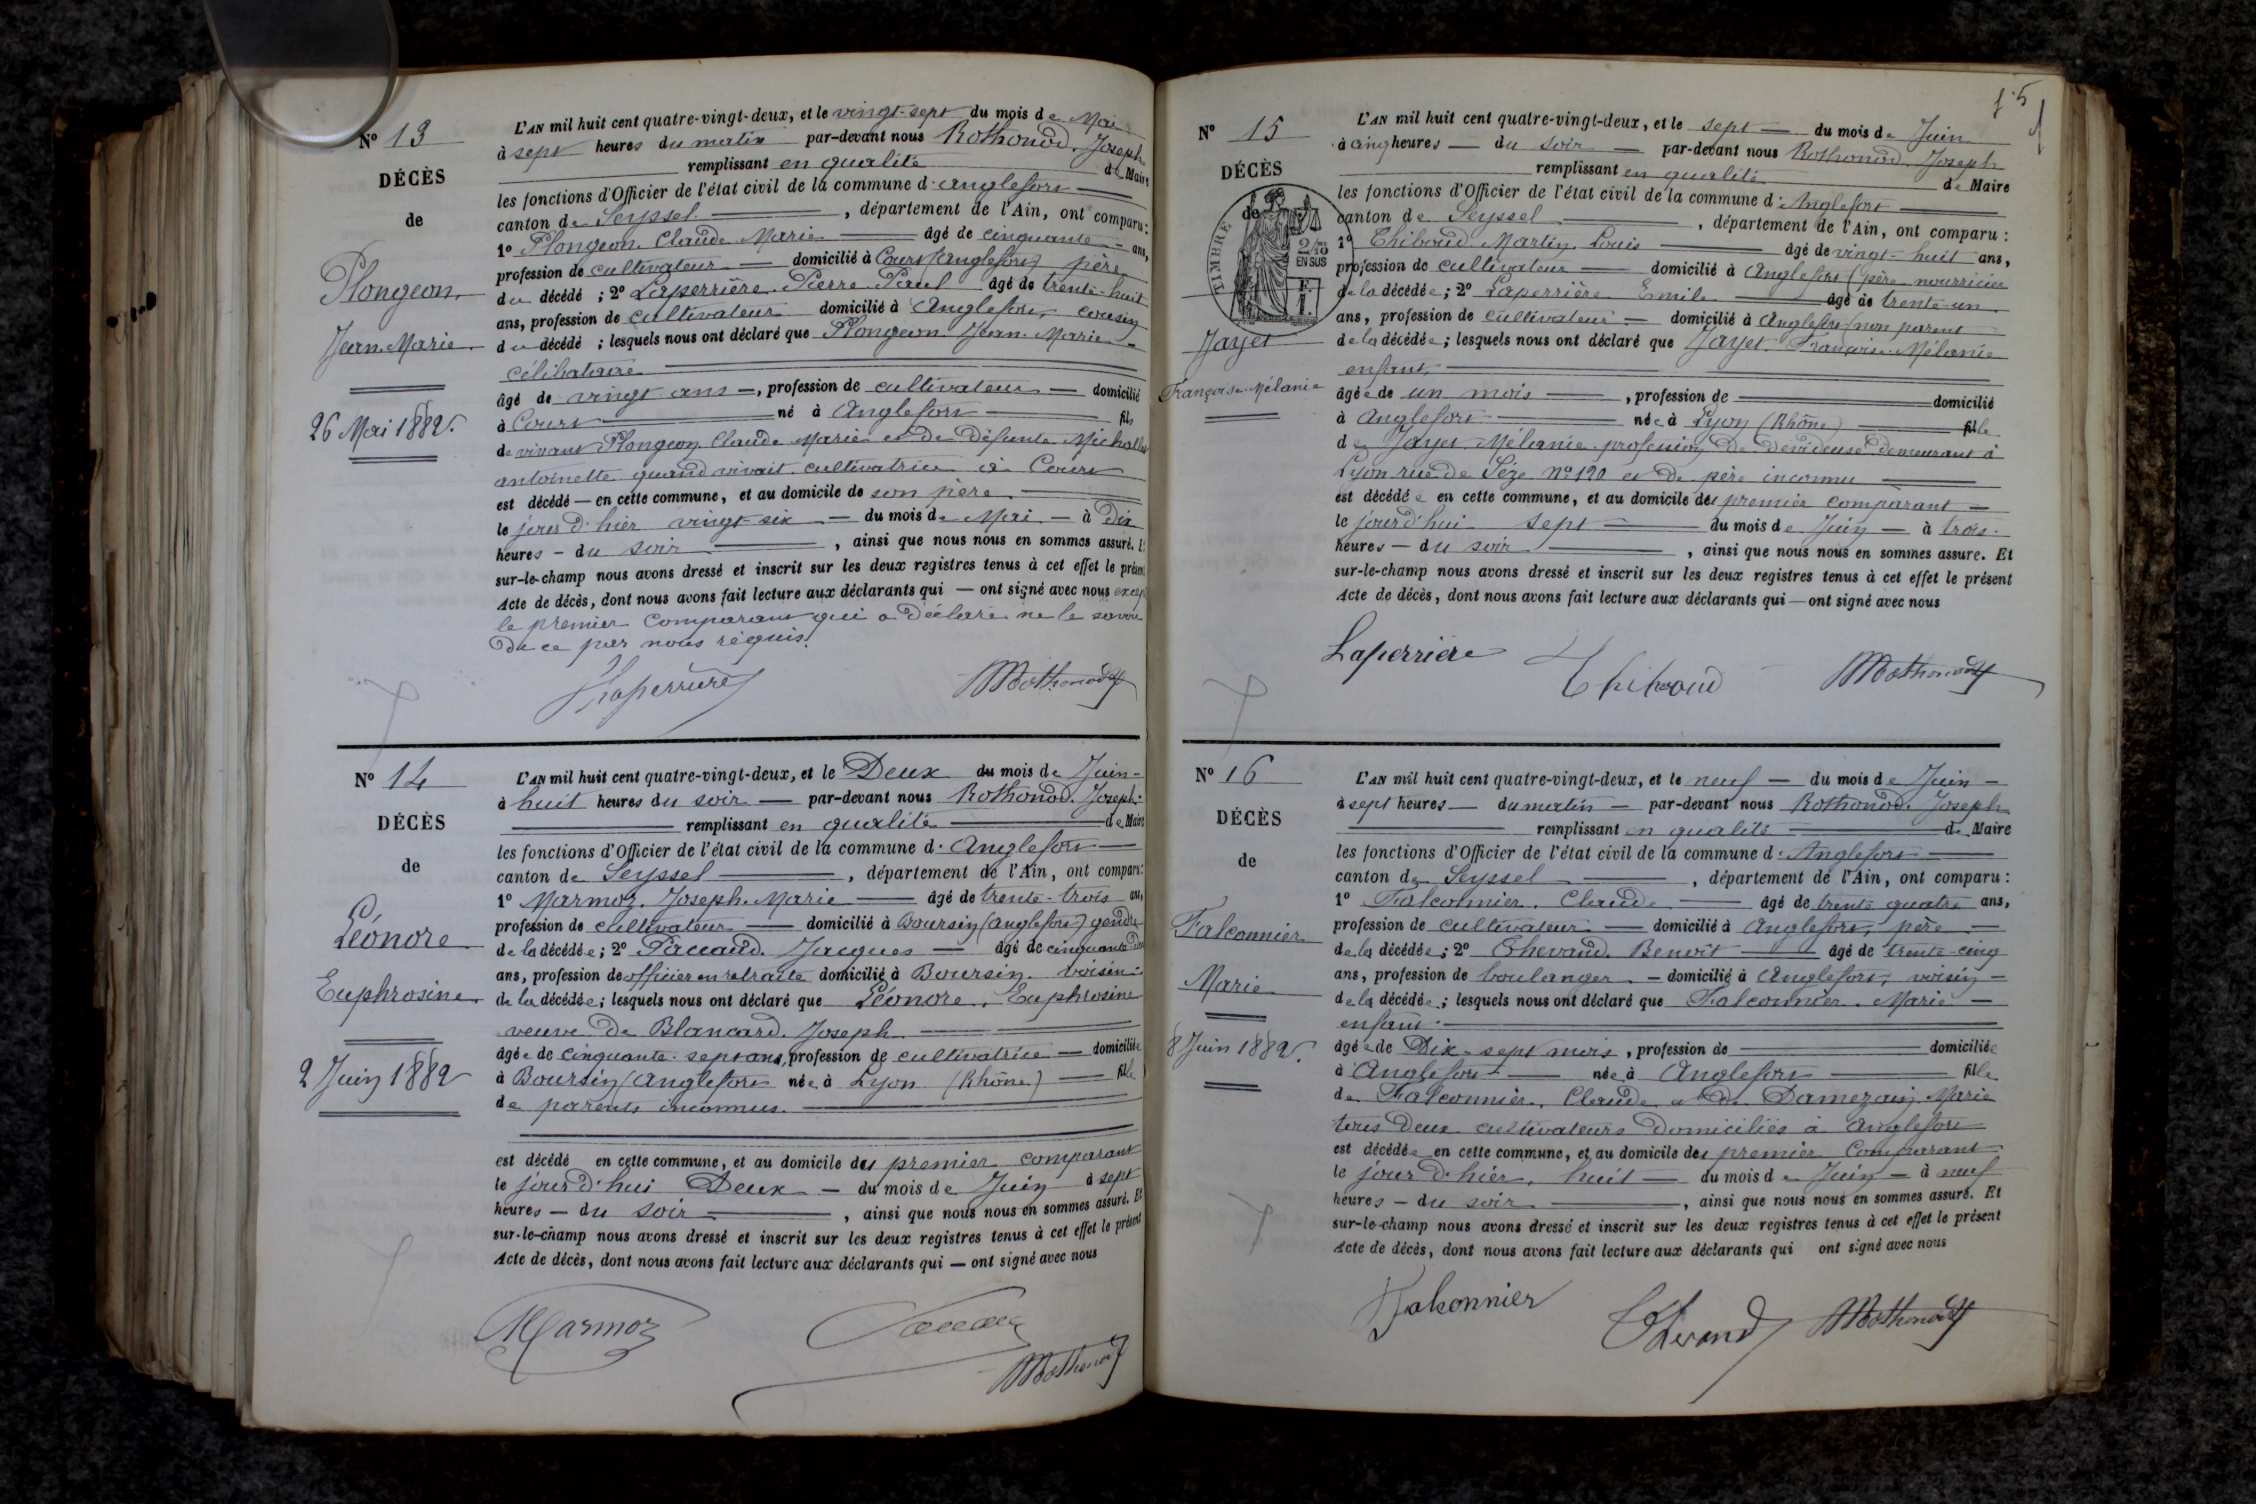 Nº 13
DÉCÈS
de
Plongeon
Jean-Marie
26 Mai 1882.
L'AN mil huit cent quatre-vingt-deux, et le vingt-sept du mois de Mai
à sept heures du matin par-devant nous Rothonod, Joseph
remplissant en qualité de Maire
les fonctions d'Officier de l'état civil de la commune d'Anglefort
canton de Seyssel, département de l'Ain, ont comparu:
1º Plongeon Claude Marie âgé de cinquante ans,
profession de cultivateur domicilié à Cours (Anglefort) père
du décédé ; 2º Laperrière Pierre Paul âgé de trente-huit
ans, profession de cultivateur domicilié à Anglefort, cousin
du décédé ; lesquels nous ont déclaré que Plongeon Jean-Marie
célibataire
âgé de vingt ans, profession de cultivateur domicilié
à Cours né à Anglefort fils
de vivant Plongeon Claude Marie et de défunte
antoinette quand vivait cultivatrice à Cours
est décédé en cette commune, et au domicile de son père
le jour d'hier vingt-six du mois de Mai à Dix
heures du soir, ainsi que nous nous en sommes assuré. Et
sur-le-champ nous avons dressé et inscrit sur les deux registres tenus à cet effet le présent
Acte de décès, dont nous avons fait lecture aux déclarants qui — ont signé avec nous excep
le premier comparant qui a Déclaré ne le savoir
De ce par nous réquis.
Laperrière Rothonod
Nº 14
DÉCÈS
de
Léonore
Euphrosine
2 Juin 1882
L'AN mil huit cent quatre-vingt-deux, et le Deux du mois de Juin
à huit heures du soir par-devant nous Rothonod, Joseph
remplissant en qualité de Maire
les fonctions d'Officier de l'état civil de la commune d'Anglefort
canton de Seyssel, département de l'Ain, ont comparu:
1º Marmoz Joseph-Marie âgé de trente-trois ans,
profession de cultivateur domicilié à Boursin (Anglefort) gendre
de la décédée; 2º Paccard Jacques âgé de cinquante Deux
ans, profession de officier en retraite domicilié à Boursin, voisin
de la décédée; lesquels nous ont déclaré que Léonore, Euphrosine
veuve De Blancard Joseph
âgée de cinquante-sept ans, profession de cultivatrice domiciliée
à Boursin (Anglefort née à Lyon (Rhône) fille
de parents inconnus.
est décédé en cette commune, et au domicile du premier comparant
le jour d'hui Deux du mois de Juin à sept
heures du soir, ainsi que nous nous en sommes assuré. Et
sur-le-champ nous avons dressé et inscrit sur les deux registres tenus à cet effet le présent
Acte de décès, dont nous avons fait lecture aux déclarants qui — ont signé avec nous
Marmoz
Rothonod
Nº 15
DÉCÈS
de
TIMBRE
2/10
EN SUS
Jayet
Françoise-Mélanie
L'AN mil huit cent quatre-vingt-deux, et le sept du mois de Juin
à cinq heures du soir par-devant nous Rothonod Joseph
remplissant en qualité de Maire
les fonctions d'Officier de l'état civil de la commune d'Anglefort
canton de Seyssel, département de l'Ain, ont comparu :
1º Thiboud Martin Louis âgé de vingt-huit ans,
profession de cultivateur domicilié à Anglefort (père nourricier
de la décédée; 2º Laperrière Emile âgé de trente-un
ans, profession de cultivateur domicilié à Anglefort (non parent
de la décédée; lesquels nous ont déclaré que Jayet Françoise-Mélanie
enfant,
âgée de un mois, profession de domicilié
à Anglefort née à Lyon (Rhône) fille
de Jayet Mélanie profession De Devideuse Demeurant à
Lyon rue de Sèze nº 120 et De père inconnu
est décédée en cette commune, et au domicile du premier comparant
le jour d'hui sept du mois de Juin à trois
heures du soir, ainsi que nous nous en sommes assuré. Et
sur-le-champ nous avons dressé et inscrit sur les deux registres tenus à cet effet le présent
Acte de décès, dont nous avons fait lecture aux déclarants qui — ont signé avec nous
Laperrière Thiboud Rothonod
Nº 16
DÉCÈS
de
Falconnier
Marie
8 Juin 1882.
L'AN mil huit cent quatre-vingt-deux, et le neuf du mois de Juin
à sept heures du matin par-devant nous Rothonod, Joseph
remplissant en qualité de Maire
les fonctions d'Officier de l'état civil de la commune d'Anglefort
canton de Seyssel, département de l'Ain, ont comparu :
1º Falconnier, Claude âgé de trente quatre ans,
profession de cultivateur domicilié à Anglefort, père
de la décédée; 2º Chevaud Benoît âgé de trente-cinq
ans, profession de boulanger domicilié à Anglefort, voisin
de la décédée; lesquels nous ont déclaré que Falconnier Marie
enfant
âgée de Dix-sept mois, profession de domiciliée
à Anglefort née à Anglefort fille
de Falconnier, Claude et De Damezin Marie
tous Deux cultivateurs Domiciliés à Anglefort
est décédée en cette commune, et au domicile du premier Comparant
le jour d'hier, huit du mois de Juin à neuf
heures du soir, ainsi que nous nous en sommes assuré. Et
sur-le-champ nous avons dressé et inscrit sur les deux registres tenus à cet effet le présent
Acte de décès, dont nous avons fait lecture aux déclarants qui ont signé avec nous
Falconnier Chevaud Rothonod